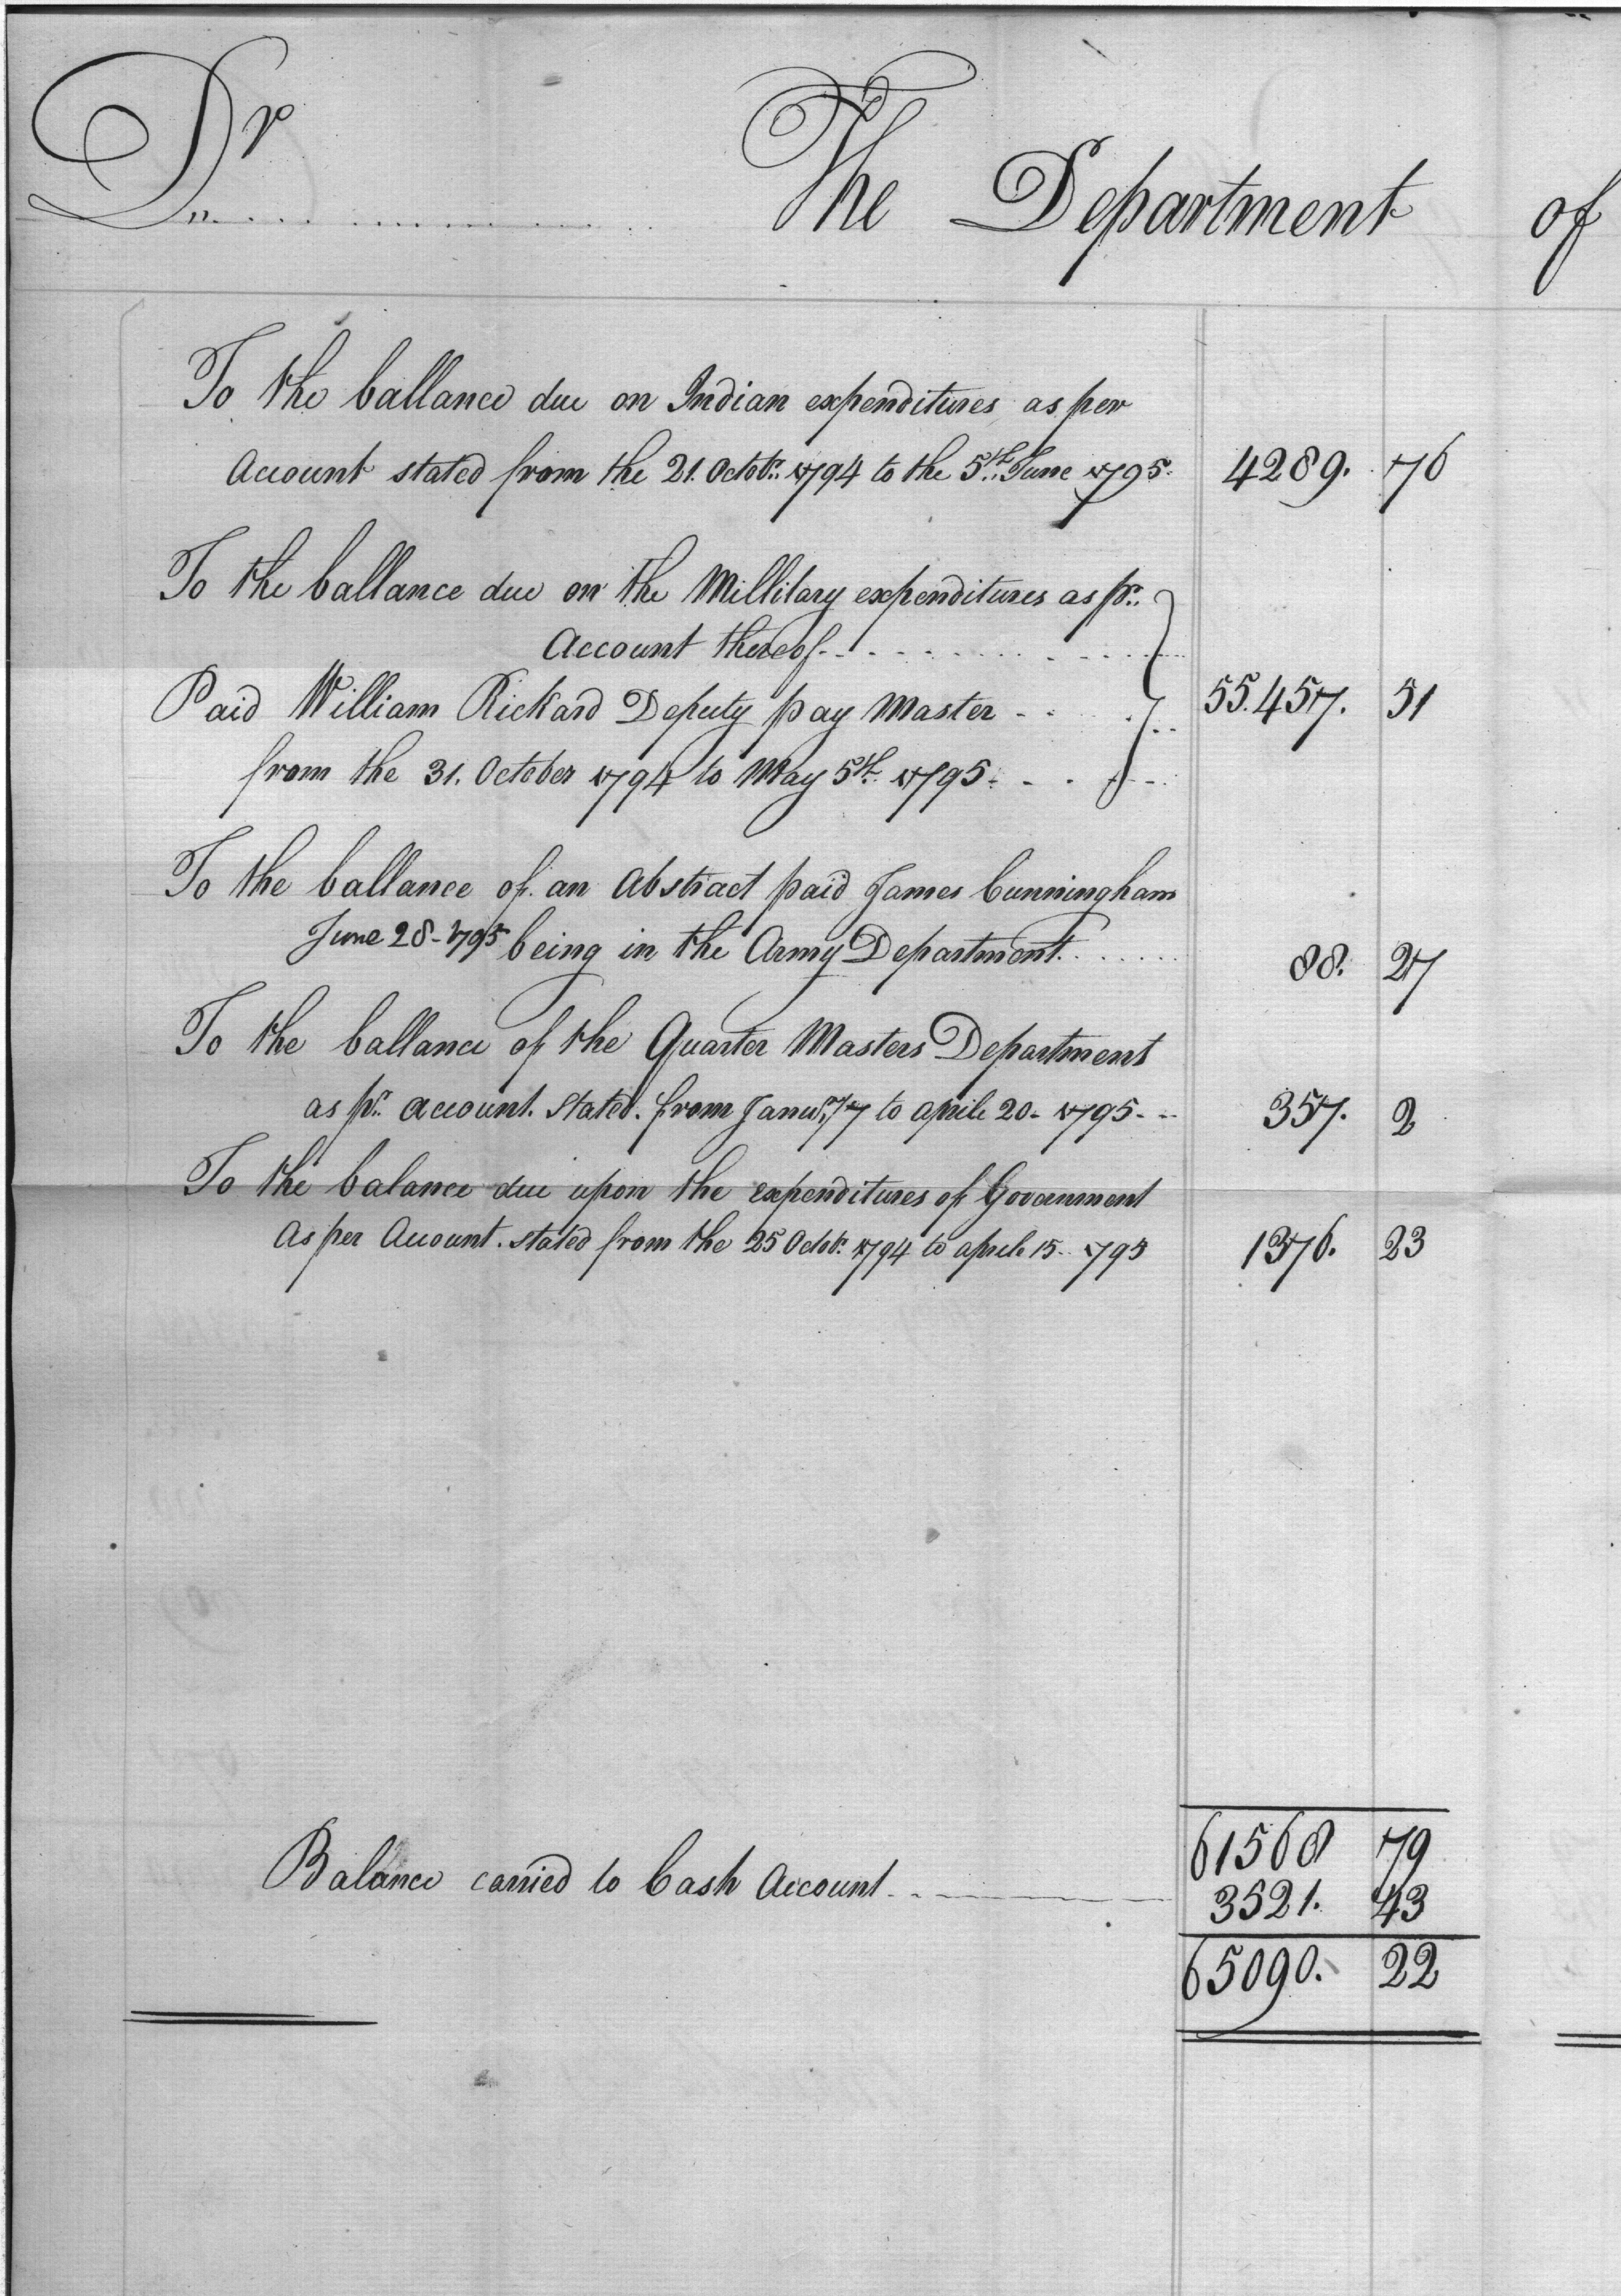 Dr The Department of
To the ballance due on Indian expenditures as per
Account stated from the 21. Octobr. 1794 to the 5th. June 1795. 4289. 76
To the ballance due on the Millitary expenditures as pr.
Account thereof
Paid William Rickard Deputy pay Master 55.457. 51
from the 31. October 1794 to May 5th. 1795.
To the ballance of an Abstract paid James Cunningham
June 28-1795 being in the Army Department 88. 27
To the ballance of the Quarter Masters Department
as pr. account. Stated. from Janury. 7 to aprile 20- 1795 357. 2
To the balance due upon the expenditures of Government
As per Account. stated from the 25 Octobr. 1794 to aprile 15 1795 1376. 23
61568 79
Balance carried to Cash Account 3521. 43
65090. 22